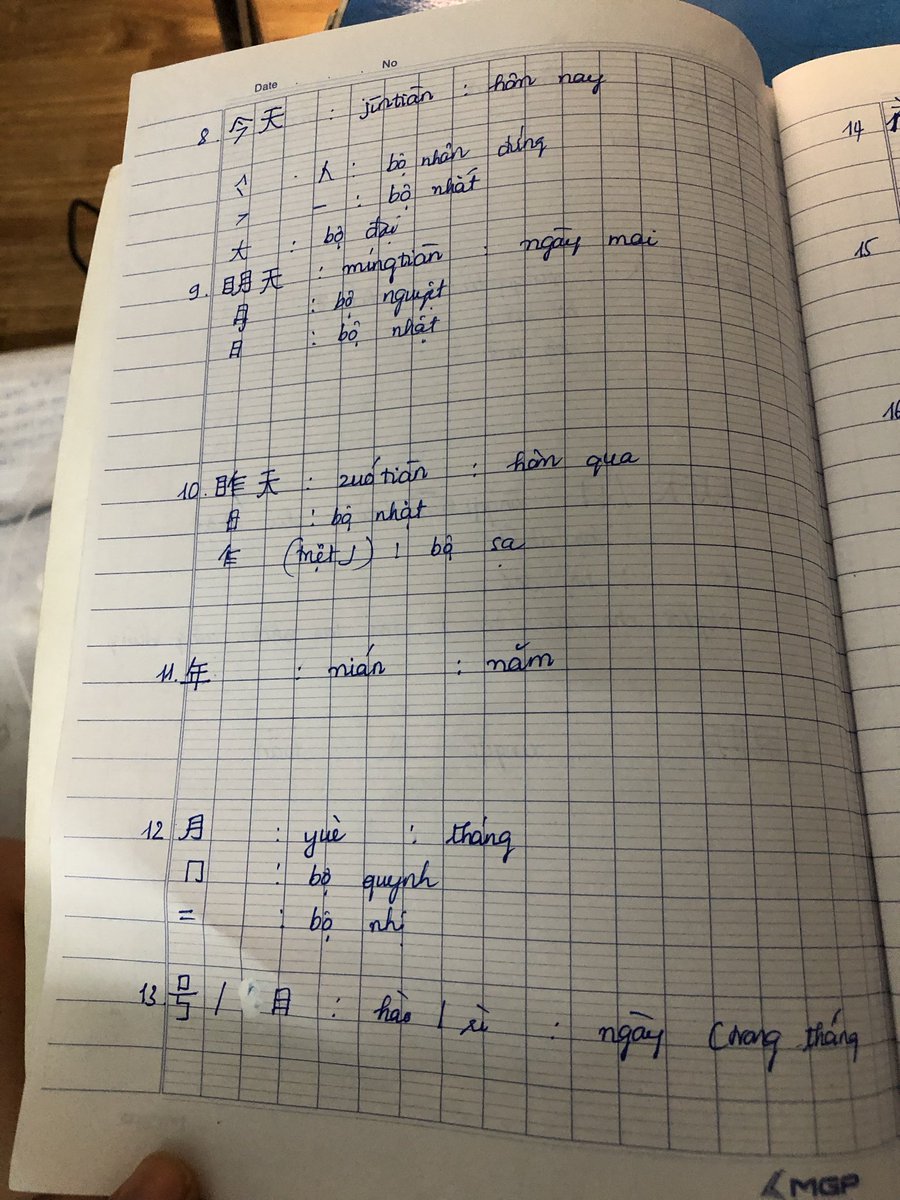 Date No
8. 今天 : jīntiān : hôn nay
亻 . 人 : bộ nhân đứng
> 一 : bộ nhất
大 : bộ đại
9. 明天 : míngtiān : ngày mai
月 : bộ nguyệt
日 : bộ nhật
10. 昨天 : zuótiān : hôn qua
日 : bộ nhật
乍 (một J) : bộ sạ
11. 年 : nián : năm
12 月 : yuè : tháng
冂 : bộ quynh
二 : bộ nhị
13 号 / 日 : hào / rì : ngày (trong tháng
14
15
16
MGP